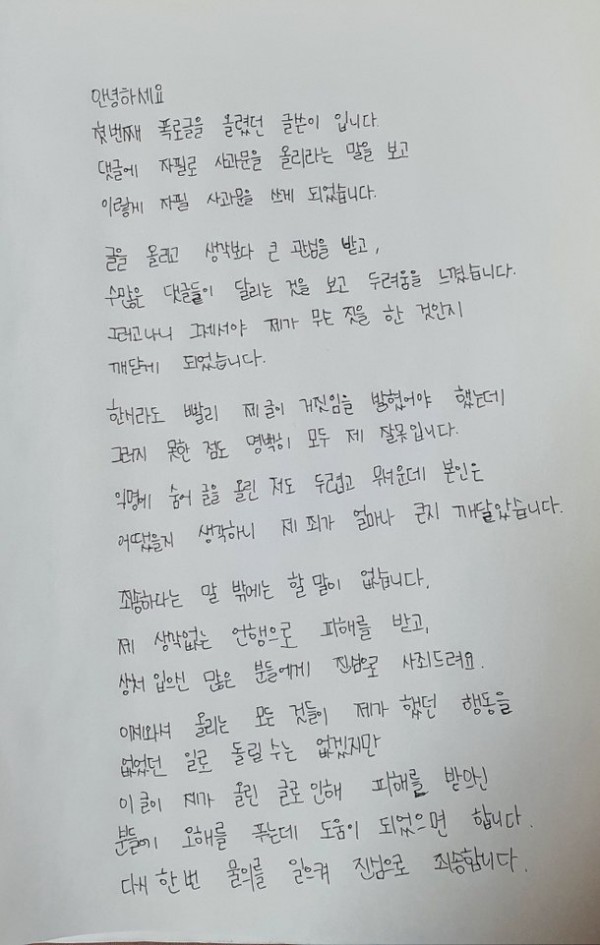 안녕하세요
첫번째 폭로글을 올렸던 글쓴이 입니다.
댓글에 자필로 사과문을 올리라는 말을 보고
이렇게 자필 사과문을 쓰게 되었습니다.
글을 올리고 생각보다 큰 관심을 받고,
수많은 댓글들이 달리는 것을 보고 두려움을 느꼈습니다.
그러고나니 그제서야 제가 무슨 짓을 한 것인지
깨닫게 되었습니다.
한시라도 빨리 제 글이 거짓임을 밝혔어야 했는데
그러지 못한 점도 명백히 모두 제 잘못입니다.
익명에 숨어 글을 올린 저도 두렵고 무서운데 본인은
어땠을지 생각하니 제 죄가 얼마나 큰지 깨달았습니다.
죄송하다는 말 밖에는 할 말이 없습니다.
제 생각없는 언행으로 피해를 받고,
상처 입으신 많은 분들에게 진심으로 사죄드려요.
이제와서 올리는 모든 것들이 제가 했던 행동을
없었던 일로 돌릴 수는 없겠지만
이 글이 제가 올린 글로 인해 피해를 받으신
분들에 오해를 푸는데 도움이 되었으면 합니다.
다시 한 번 물의를 일으켜 진심으로 죄송합니다.